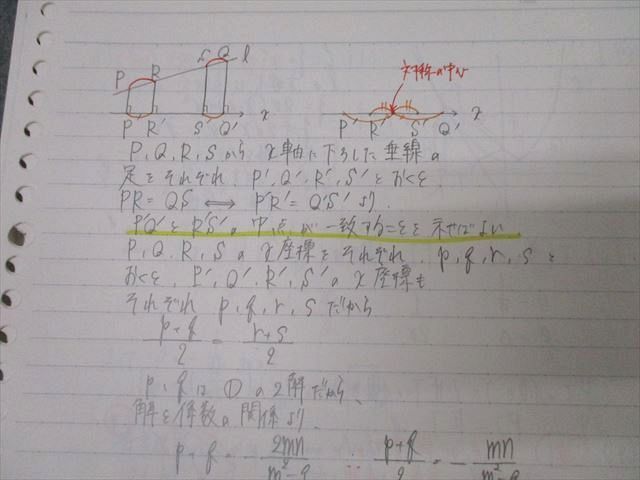 S Q l
P R
対称の中心
x
P' R' S' Q'
x
P' R' S' Q'
P, Q, R, S から x軸に下ろした垂線の
足をそれぞれ. P', Q', R', S' とおくと.
PR = QS ⟺ P'R' = Q'S' より.
P'Q' と R'S' の 中点が 一致することを示せばよい.
P, Q, R, S の x座標をそれぞれ. p, q, r, s と
おくと. P', Q', R', S' の x 座標も
それぞれ p, q, r, s だから
(p+q)/2 = (r+s)/2
p, q は ① の 2解だから、
解と係数の関係より.
p+q = - 2mn/(m²- ∴ (p+q)/2 = - mn/(m²-